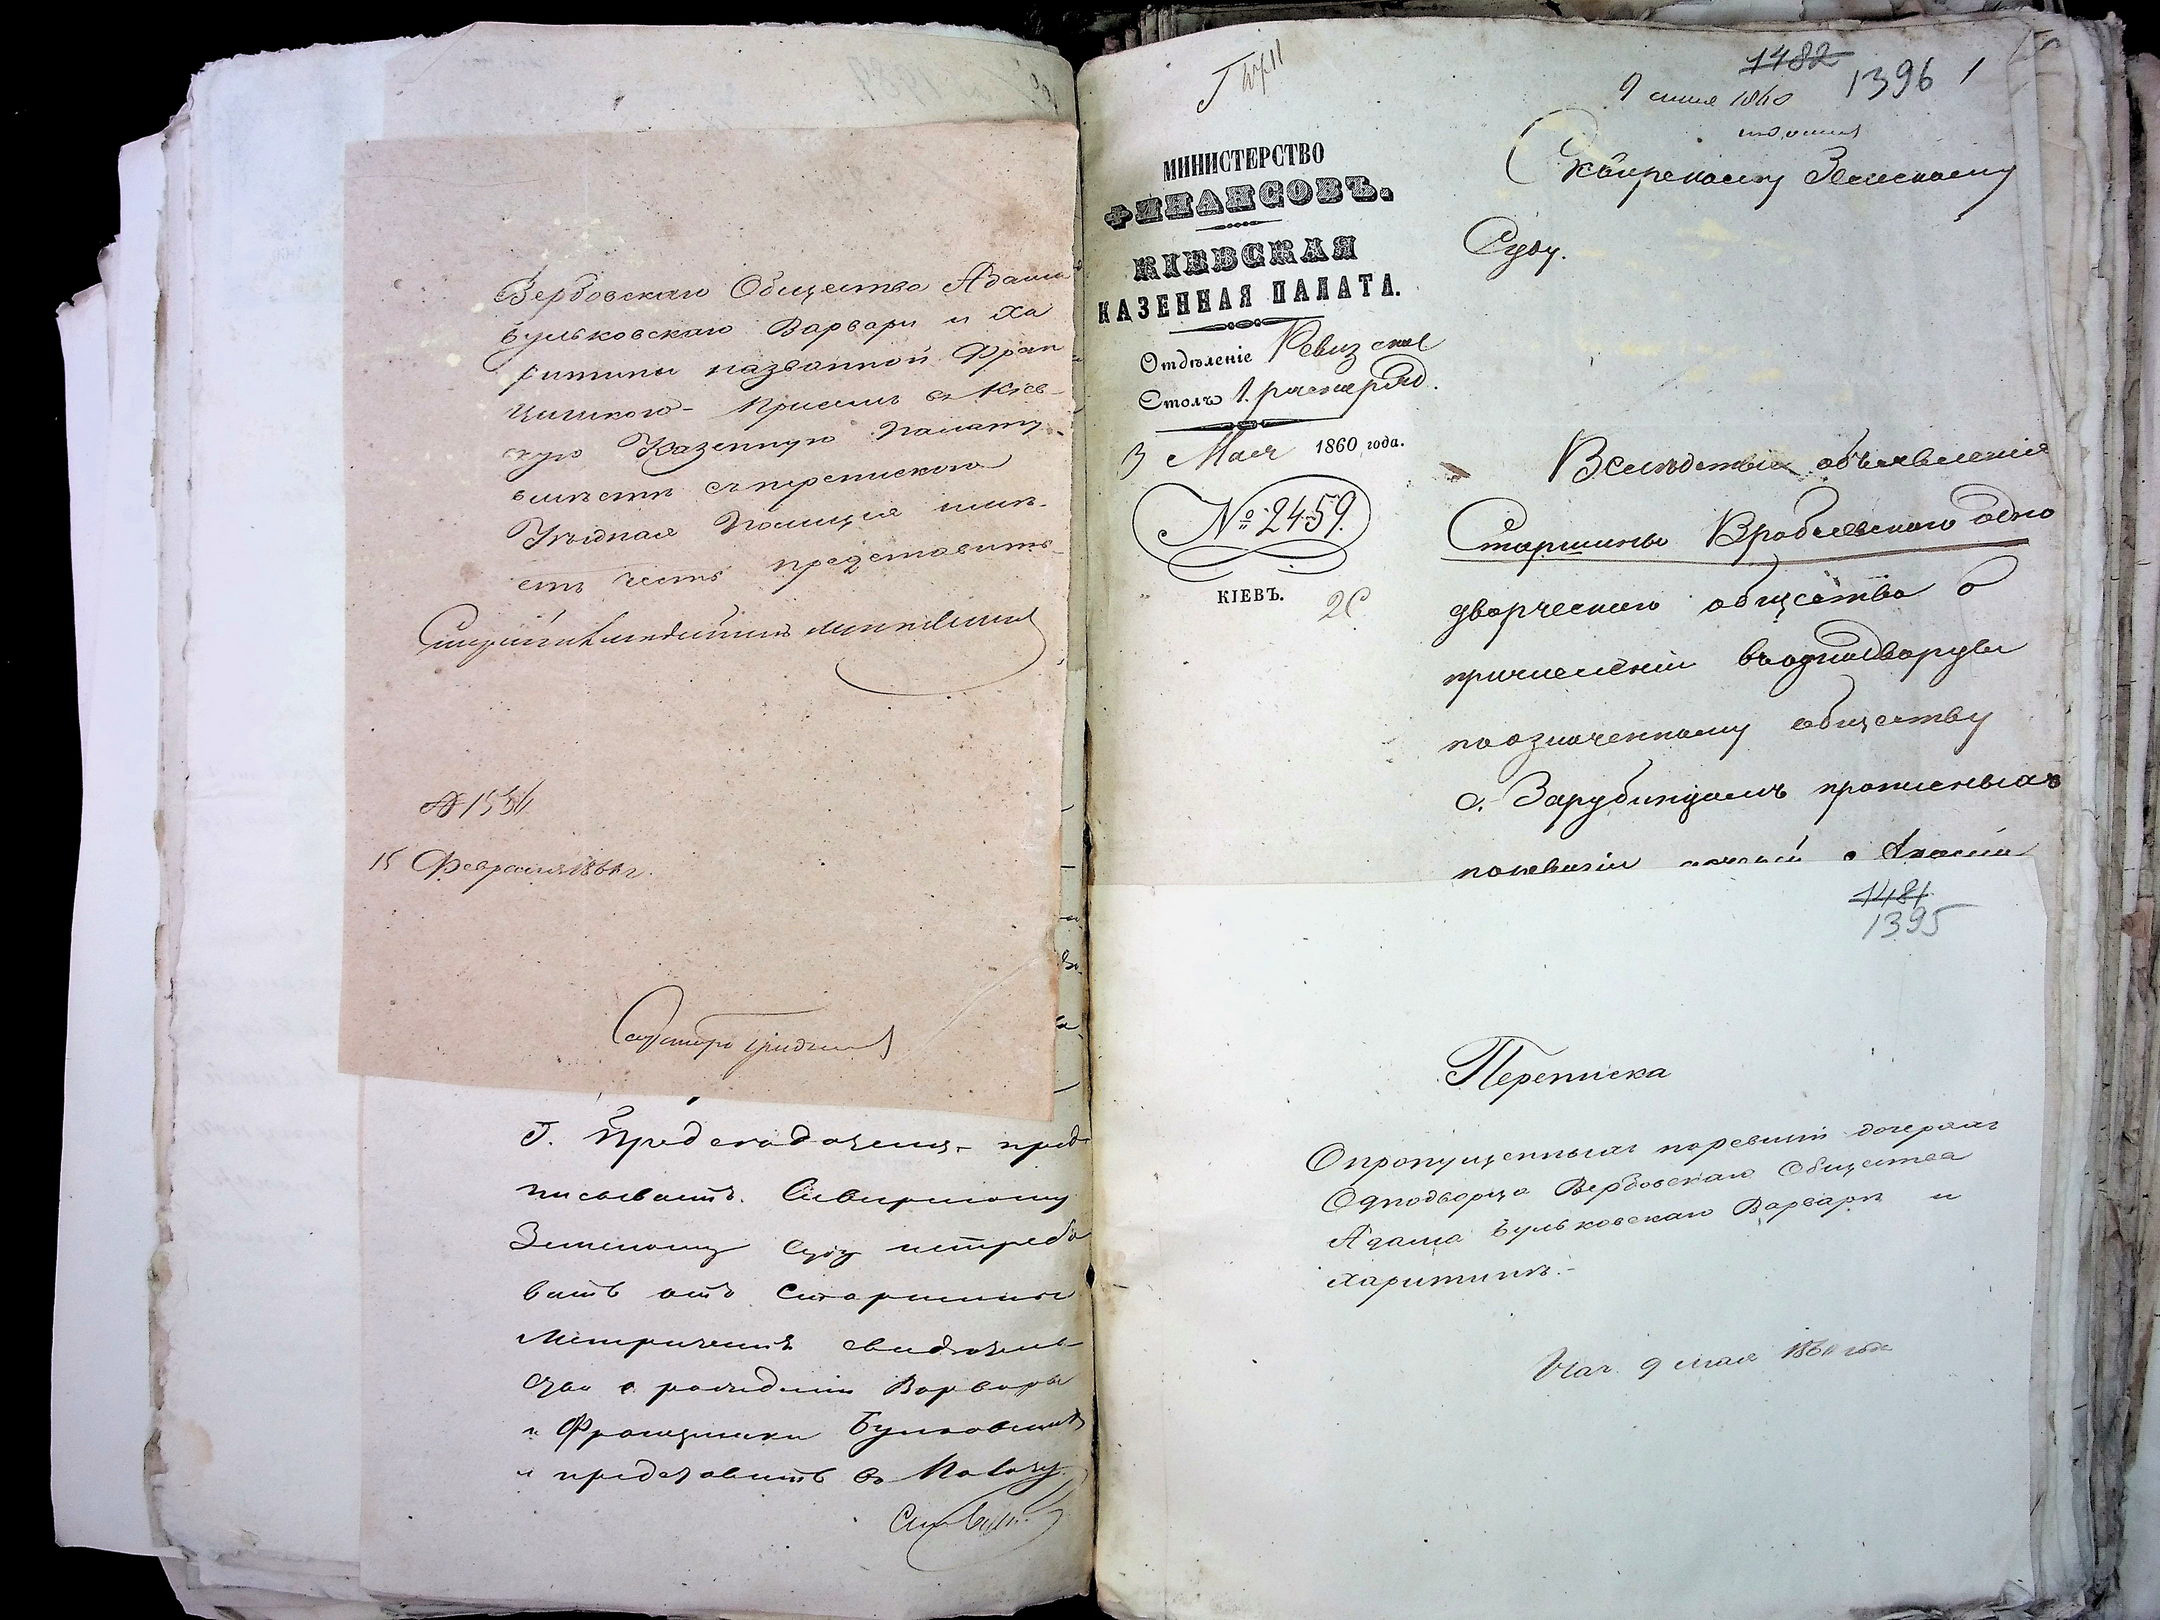 Вербовскаго Общества Адама
Бульковскаго Варвары и Ха
ритины названной Фран
цишкою - Присемъ въ Кіев-
скую Казенную Палату
вместе съ перепискою
Уѣздная Полиція имѣ-
етъ честь представить
№ 155
15 Февраля 186 г.
Г. Предсѣдателя, пред-
писываетъ Сквирскому
Земскому Суду истребо
вать отъ Старшины
Метрическія свидѣтель-
ства о рожденіи Варвары
и Францишки Бульковскихъ
и представить въ Палату.
1482
1396
9 1860
МИНИСТЕРСТВО
ФИНАНСОВЪ.
КІЕВСКАЯ
КАЗЕННАЯ ПАЛАТА.
Отдѣленіе Ревизское
Столъ 1. распоряд.
3 Мая 1860 года.
№ 2459.
КІЕВЪ.
Сквирскому Земскому
Суду.
Вслѣдствіе объявленія
Старшины Вробельскаго одно
дворческаго общества о
причисленіи въ однодворцы
по означенному обществу
с. Зарубинцамъ
1481
1395
Переписка
О пропущенныхъ по ревизіи дочеряхъ
Однодворца Вербовскаго Общества
Адама Бульковскаго Варварѣ и
Харитинѣ.-
Нач. 9 мая 1860 года